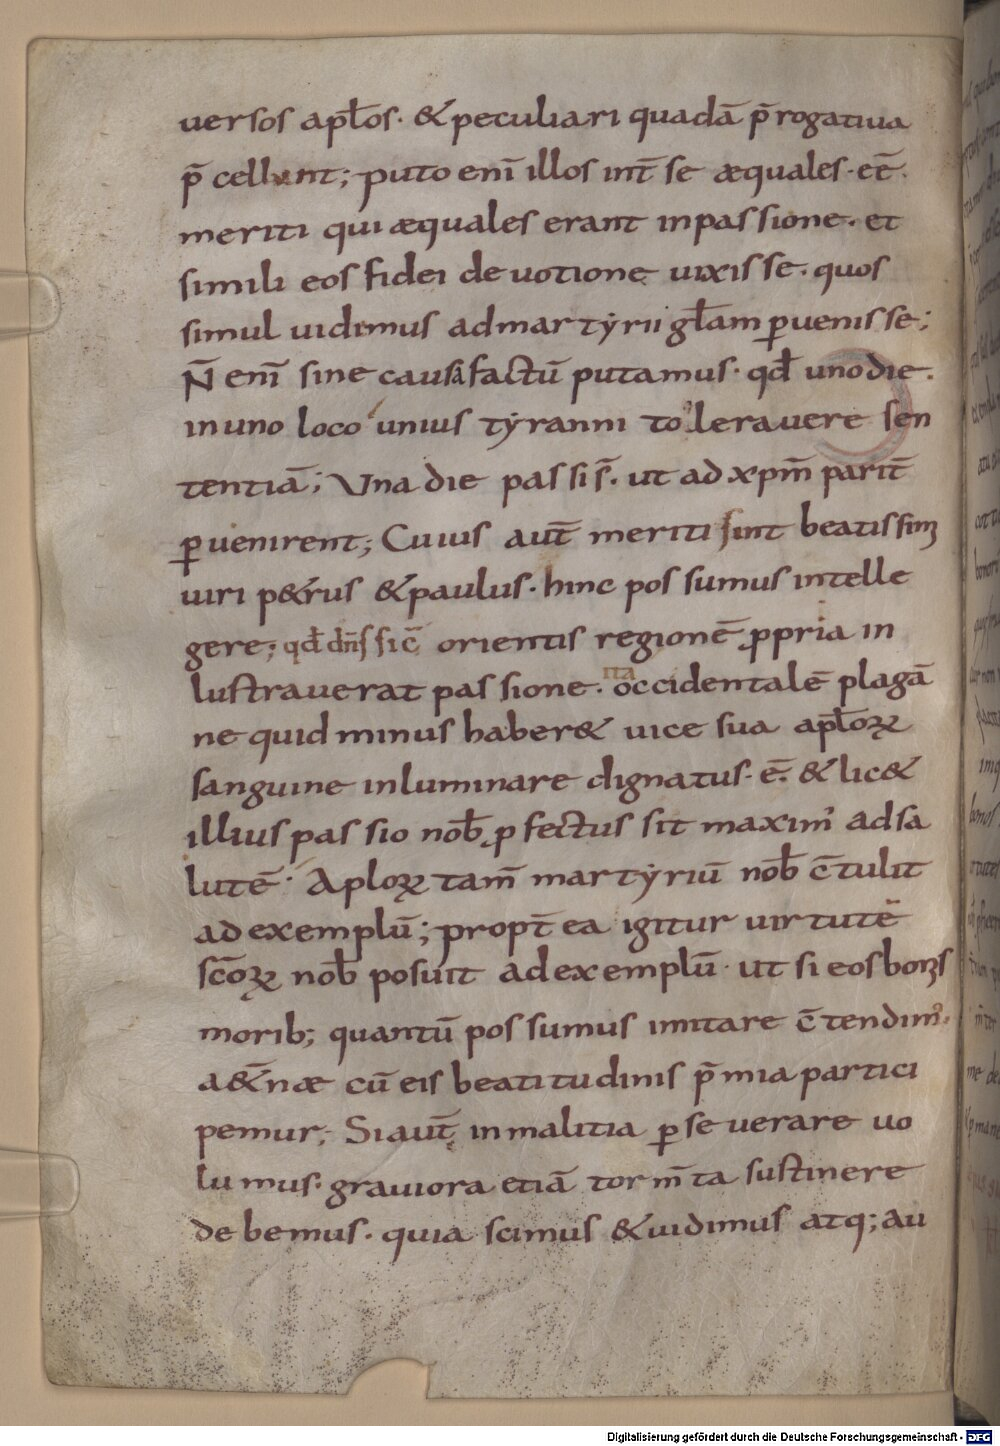 uersos apłos. & peculiari quadā p̄rogatiua
p̄cellunt; puto enī illos int̄ se æquales. eē.
meriti qui æquales erant in passione. et
simili eos fidei deuotione uixisse. quos
simul uidemus ad martẏrii głam ꝑuenisse;
N̄ enī sine causa factū putamus. qđ uno die.
in uno loco unius tẏranni tolerauere sen
tentiā; Una die passi s̄. ut ad xp̄m parit̄
ꝑuenirent; Cuius aut̄ meriti sint beatissimi
uiri p&rus & paulus. hinc possumus intelle
gere; qđ dn̄s sic̄ orientis regionē ꝓpria in
lustrauerat passione. ita occidentalē plagā
ne quid minus haber& uice sua apłoꝝ
sanguine inluminare dignatus. ē. & lic&
illius passio nob̄ ꝓfectus sit maxim᾽ ad sa
lutē. Aploꝝ tam̄ martẏriū nob̄ c̄tulit
ad exemplū; propt̄ea igitur uirtutē
sc̄oꝝ nob̄ posuit ad exemplū. ut si eos bonis
morib; quantū possumus imitare c̄tendim᾽.
a&̄næ cū eis beatitudinis p̄mia partici
pemur; Si aut̄ in malitia ꝑseuerare uo
lumus. grauiora etiā torm̄ta sustinere
debemus. quia scimus & uidimus atq; au
Digitalisierung gefördert durch die Deutsche Forschungsgemeinschaft - DFG